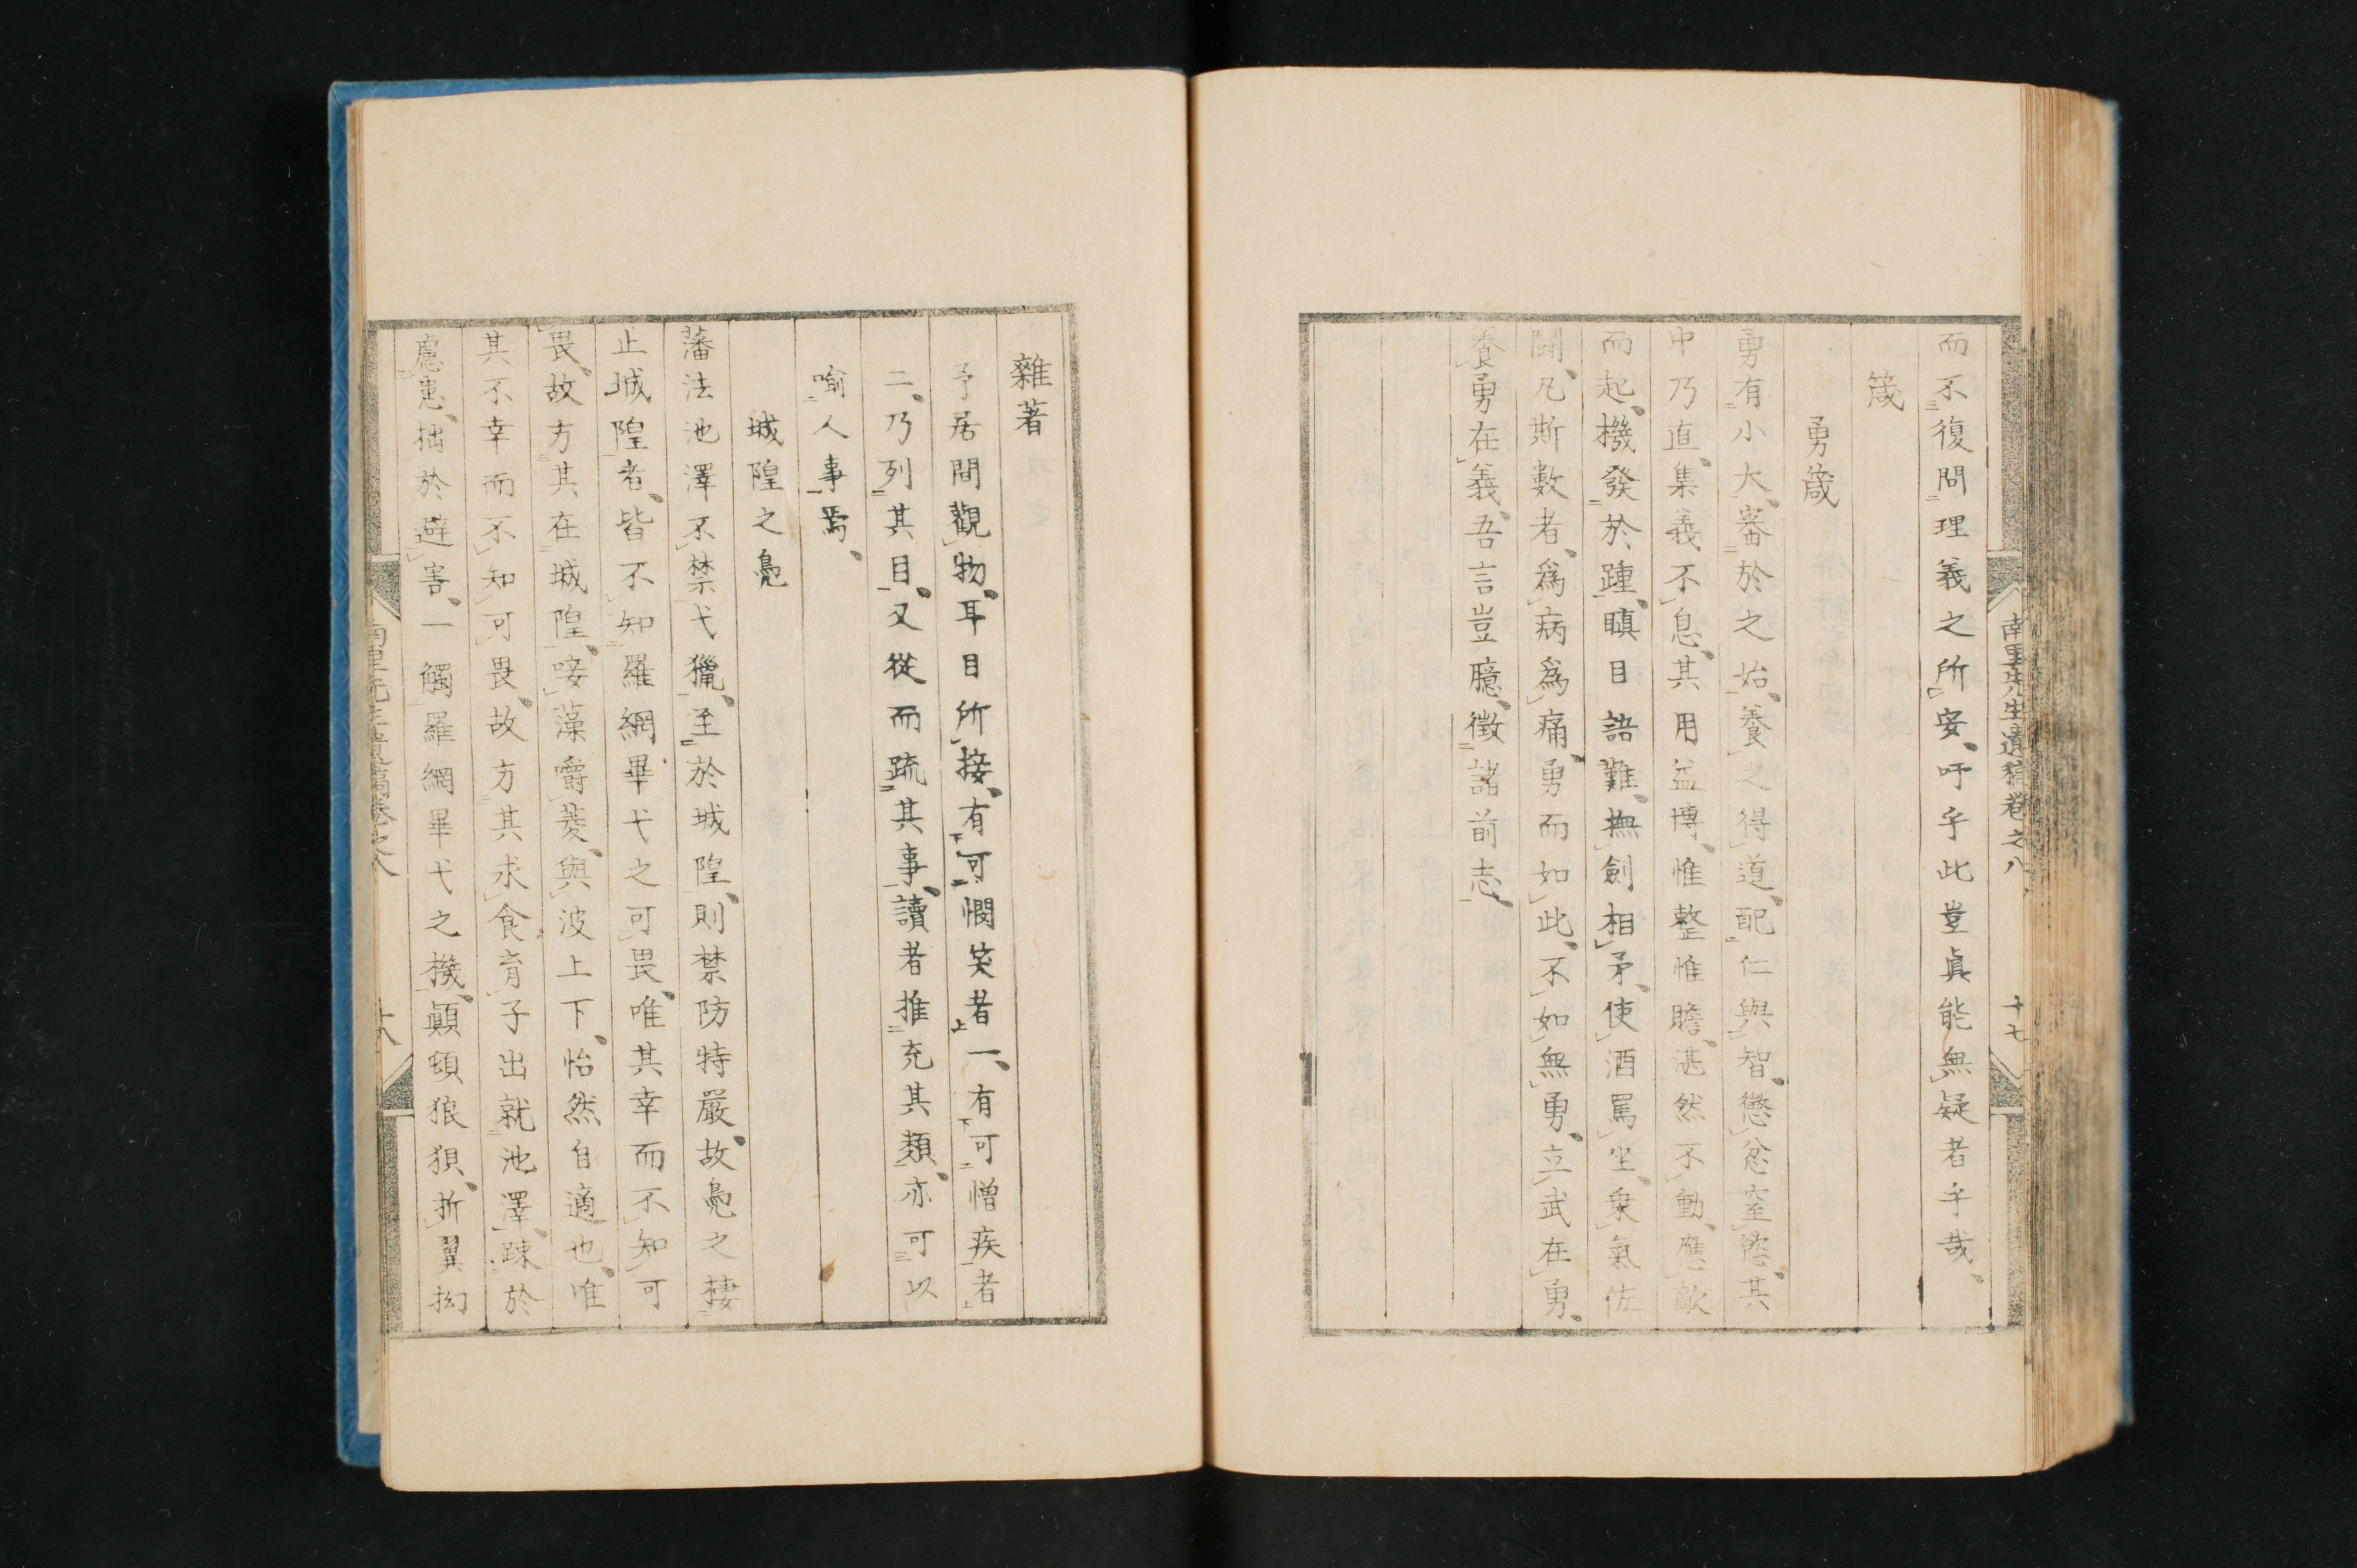 南里先生遺稿卷之八 十七
而不復問理義之所安、吁乎此豈眞能無疑者乎哉、
箴
勇箴
勇有小大、審於之始、養之得道、配仁與智、懲忿窒慾、其
中乃直、集義不息、其用益博、惟整惟瞻、湛然不動、應敵
而起、機發於踵、瞋目語難、撫劍相矛、使酒罵坐、乘氣佐
鬪、凡斯數者、爲病爲痛、勇而如此、不如無勇、立武在勇、
養勇在義、吾言豈臆、徵諸前志、
雜著
予居間觀物、耳目所接、有可憫笑者一、有可憎疾者
二、乃列其目、又從而疏其事、讀者推充其類、亦可以
喻人事焉、
城隍之鳧
藩法池澤不禁弋獵、至於城隍、則禁防特嚴、故鳧之棲
止城隍者、皆不知羅網畢弋之可畏、唯其幸而不知可
畏、故方其在城隍、唼藻嚼菱、與波上下、怡然自適也、唯
其不幸而不知可畏、故方其求食育子出就池澤、踈於
慮患、拙於避害、一觸羅網畢弋之機、顚頓狼狽、折翼拗
南里先生遺稿卷之八 十八